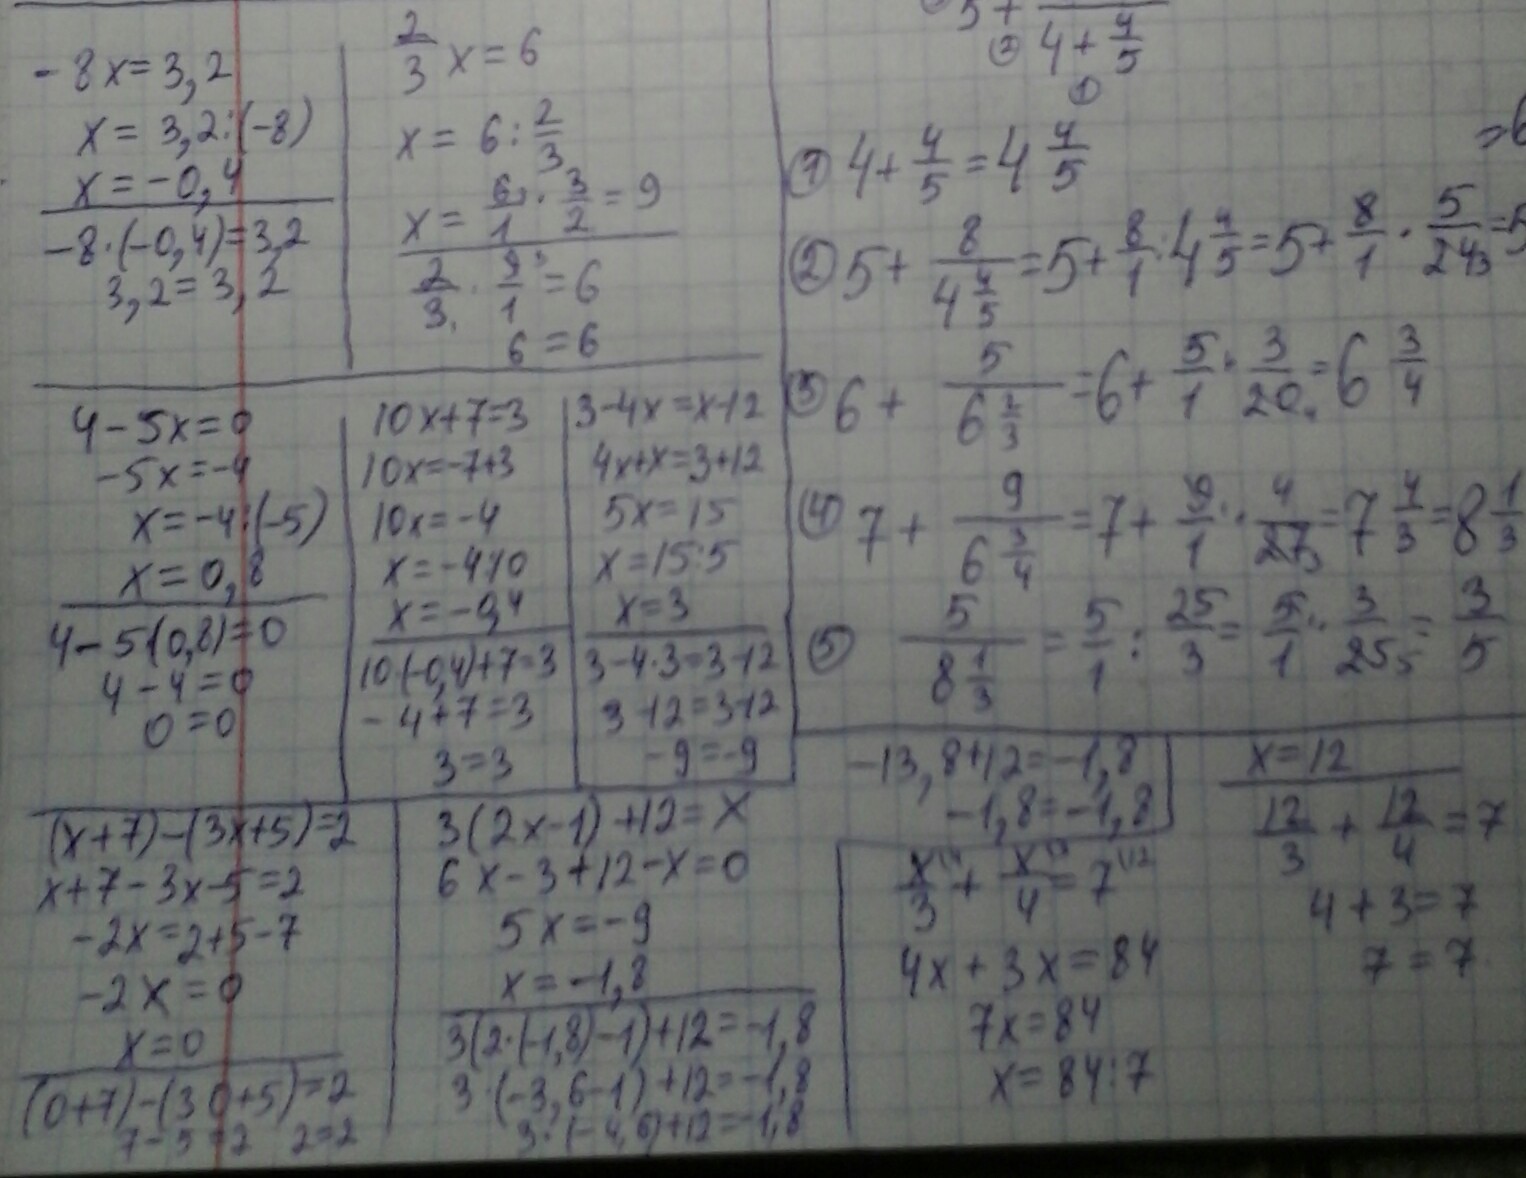 -8x=3,2
x=3,2:(-8)
x=-0,4
-8·(-0,4)=3,2
3,2=3,2
2/3 x=6
x=6:2/3
x=6/1·3/2=9
2/3·9/1=6
6=6
4-5x=0
-5x=-4
x=-4:(-5)
x=0,8
4-5(0,8)=0
4-4=0
0=0
10x+7=3
10x=-7+3
10x=-4
x=-4:10
x=-0,4
10·(-0,4)+7=3
-4+7=3
3=3
3-4x=x-12
4x+x=3+12
5x=15
x=15:5
x=3
3-4·3=3-12
3-12=3-12
-9=-9
5+
② 4+4/5
①
① 4+4/5=4 4/5
② 5+8/(4 4/5)=5+8/1:4 4/5=5+8/1·5/24 3=5
③ 6+5/(6 2/3)=6+5/1·3/20 4=6 3/4
④ 7+9/(6 3/4)=7+9/1·4/27 3=7 4/3=8 1/3
⑤ 5/(8 1/3)=5/1:25/3=5/1·3/25 5=3/5
(x+7)-(3x+5)=2
x+7-3x-5=2
-2x=2+5-7
-2x=0
x=0
(0+7)-(3·0+5)=2
7-5=2 2=2
3(2x-1)+12=x
6x-3+12-x=0
5x=-9
x=-1,8
3(2·(-1,8)-1)+12=-1,8
3·(-3,6-1)+12=-1,8
3·(-4,6)+12=-1,8
-13,8+12=-1,8
-1,8=-1,8
x/3 +x/4 =7
4x+3x=84
7x=84
x=84:7
x=12
12/3+12/4=7
4+3=7
7=7